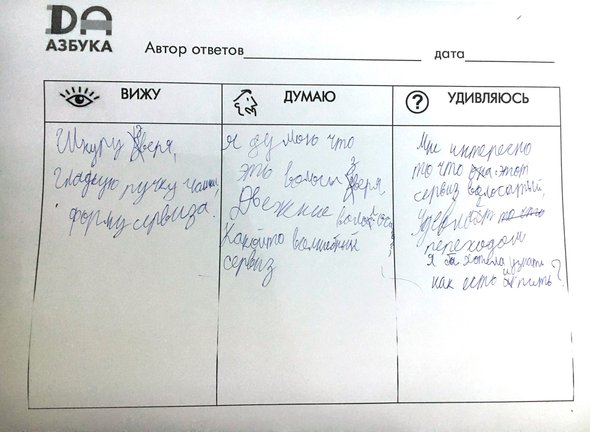 DA
АЗБУКА
Автор ответов
дата
ВИЖУ
ДУМАЮ
? УДИВЛЯЮСЬ
Шкуру зверя,
гладкую ручку чашки,
форму сервиза.
я думою что
это волосы зверя.
Движение волос
Какойто волшебный
сервиз
Мне интересно
то что этот
сервиз волосатый
переходом
я бы хотела узнать
как есть и пить?